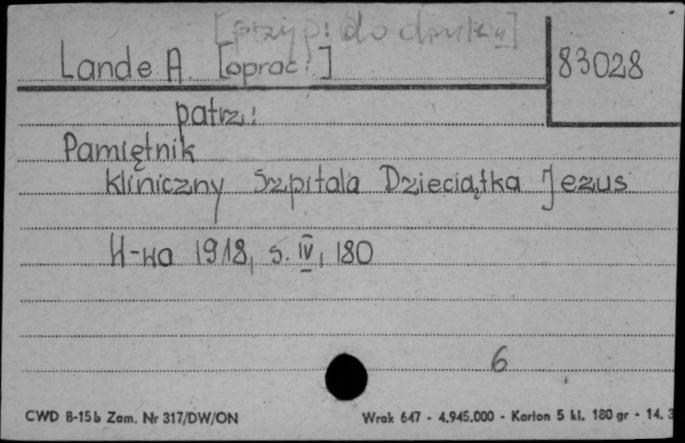 [przyp: do druku]
Lande A. [oprac.]
83028
patrz:
Pamiętnik
kliniczny Szpitala Dzieciątka Jezus
W-wa 1918, s. IV, 180
6
CWD B-15b Zam. Nr 317/DW/ON
Wrak 647 - 4.945.000 - Karton 5 kl. 180 gr - 14. 3